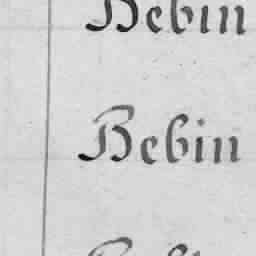 Bebin
Bebin